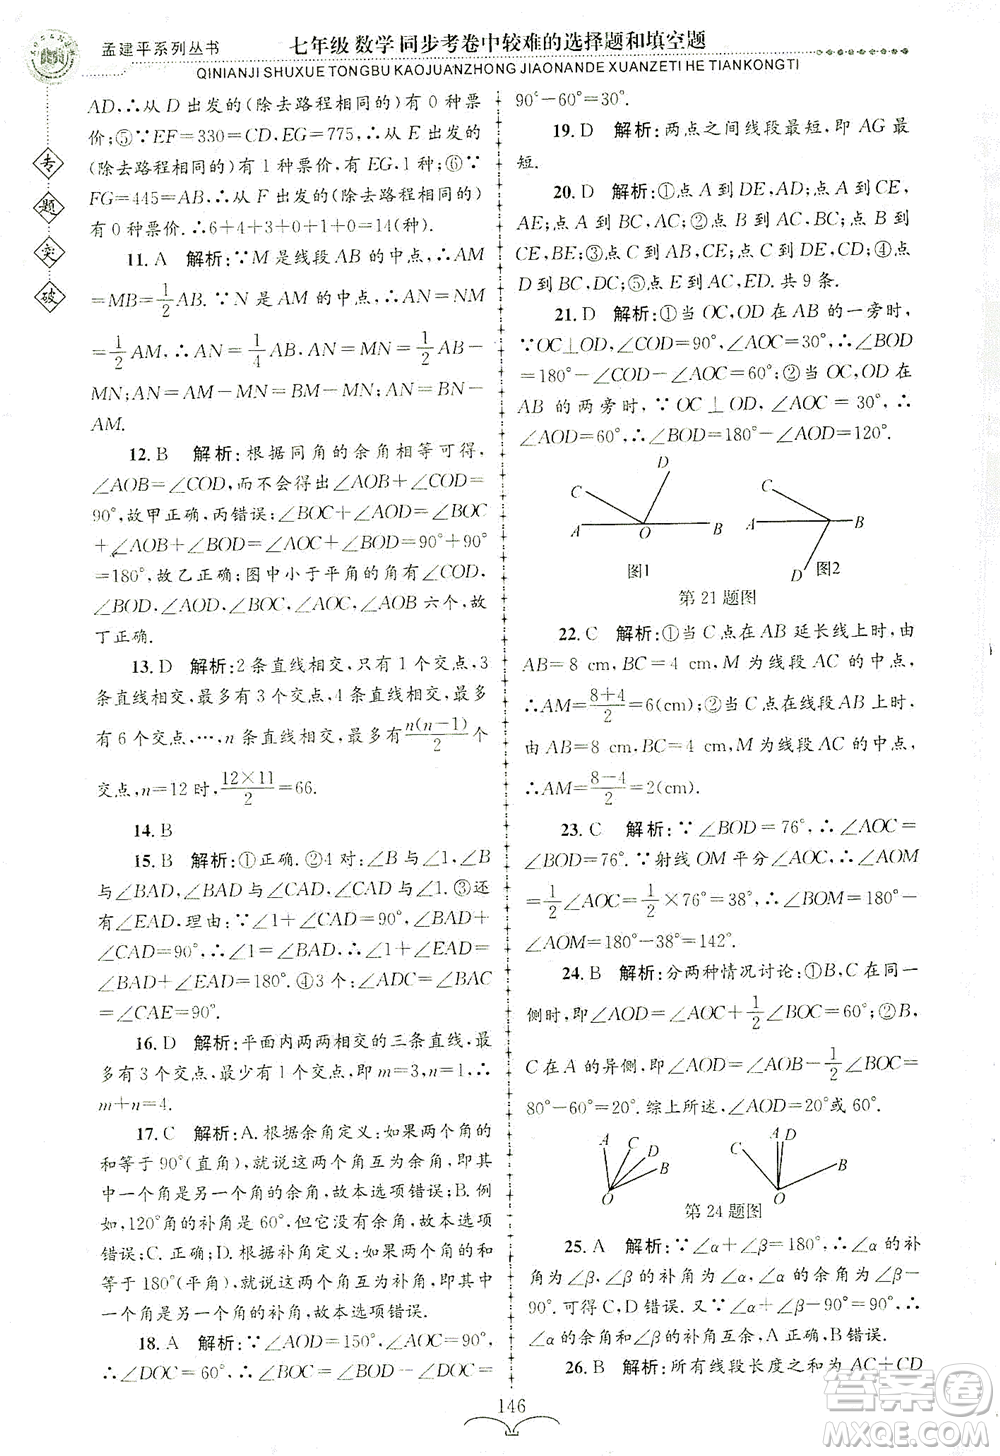 孟建平系列丛书
七年级 数学 同步考卷中较难的选择题和填空题
QINIANJI SHUXUE TONGBU KAOJUANZHONG JIAONANDE XUANZETI HE TIANKONGTI
专
题
突
破
AD,∴从 D 出发的(除去路程相同的)有 0 种票
价;⑤∵EF=330=CD,EG=775,∴从 E 出发的
(除去路程相同的)有 1 种票价,有 EG,1 种;⑥∵
FG=445=AB,∴从 F 出发的(除去路程相同的)
有 0 种票价.∴6+4+3+1+0=14(种).
11. A 解析:∵M 是线段 AB 的中点,∴AM
=MB=1/2 AB.∵N 是 AM 的中点,∴AN=NM
=1/2 AM,∴AN=1/4 AB,∴BN=AB-AN=AB-
MN;AN=AM-MN=BM-MN;AN=BN-
AM.
12. B 解析:根据同角的余角相等可得,
∠AOB=∠COD,而不会得出∠AOB+∠COD=
90°,故甲正确,丙错误;∠BOC+∠AOD=∠BOC
+∠AOB+∠BOD=∠AOC+∠BOD=90°+90°
=180°,故乙正确;图中小于平角的角有∠COD,
∠BOD,∠AOD,∠BOC,∠AOC,∠AOB 六个,故
丁正确.
13. D 解析:2 条直线相交,只有 1 个交点,3
条直线相交,最多有 3 个交点,4 条直线相交,最多
有 6 个交点,…,n 条直线相交,最多有n(n-1)/2个
交点,n=12 时,12×11/2=66.
14. B
15. B 解析:①正确.②4 对:∠B 与∠1,∠B
与∠BAD,∠BAD 与∠CAD,∠CAD 与∠1.③还
有∠EAD.理由:∵∠1+∠B=∠1+∠BAD=∠B
+∠CAD=90°,∴∠1=∠BAD,∴∠BAD+∠CAE
=∠BAD+∠EAD=180°.④∠ADC=∠ADB=
∠CAE=90°.
16. D 解析:平面内两两相交的三条直线,最
多有 3 个交点,最少有 1 个交点,即 m=3,n=1,∴
m+n=4.
17. C 解析:A.根据余角定义:如果两个角的
和等于 90°(直角),就说这两个角互为余角,即其
中一个角是另一个角的余角,故本选项错误;B.例
如,120°角的补角是 60°,但它没有余角,故本选项
错误;C.正确;D.根据补角定义:如果两个角的和
等于 180°(平角),就说这两个角互为补角,即其中
一个角是另一个角的补角,故本选项错误.
18. A 解析:∵∠AOD=150°,∠AOC=90°,
∴∠DOC=60°,∵∠BOD=90°,∴∠BOC=
90°-60°=30°.
19. D 解析:两点之间线段最短,即 AG 最
短.
20. D 解析:①点 A 到 DE,AD;点 A 到 CE,
AE;点 A 到 BC,AC;②点 B 到 AC,BC;点 B 到
AD,BD;③点 C 到 AB,CA;点 C 到 DE,CE;④点
D 到 BC,DE;⑤点 E 到 AB,DE.共 9 条.
21. D 解析:①当 OC,OD 在 AB 的一旁时,
∵OC⊥OD,∠COD=90°,∠AOC=30°,∴∠BOD
=180°-∠COD-∠AOC=60°;②当 OC,OD 在
AB 的两旁时,∵OC⊥OD,∠AOC=30°,∴
∠AOD=60°,∴∠BOD=180°-∠AOD=120°.
C D A O B
图1
C A B D
图2
第 21 题图
22. C 解析:①当 C 点在 AB 延长线上时,由
AB=8 cm,BC=4 cm,M 为线段 AC 的中点,
∴AM=8+4/2=6(cm);②当 C 点在 AB 上时,
由 AB=8 cm,BC=4 cm,M 为线段 AC 的中点,
∴AM=8-4/2=2(cm).
23. C 解析:∵∠BOD=76°,∴∠AOC=
∠BOD=76°.∵射线 OM 平分∠AOC,∴∠AOM
=1/2∠AOC=1/2×76°=38°,∴∠BOM=180°-
∠AOM=180°-38°=142°.
24. B 解析:分两种情况讨论:①B,C 在同一
侧时,此时∠AOD=∠AOC+1/2∠BOC=60°;②B,
C 在 A 的异侧,此时∠AOD=∠AOB-1/2∠BOC=
80°-60°=20°.综上所述,∠AOD=20°或 60°.
A C D B O
C A D B O
第 24 题图
25. A 解析:∵∠α+∠β=180°,∴∠α 的补
角为∠β,∠β的补角为∠α,∠α 的余角为∠β-
90°.可得 C,D 错误.又∵∠α-∠β=90°,∴
∠α-90°=∠β的余角和∠β的补角互补.故 B 错误.
26. B 解析:所有线段长度之和=AC+CD
146
答案圈
MXQE.COM